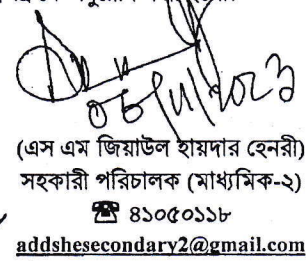 ০৮/১১/২০২৩
(এস এম জিয়াউল হায়দার হেনরী)
সহকারী পরিচালক (মাধ্যমিক-২)
☎ ৪১০৫০১১৮
addshesecondary2@gmail.com